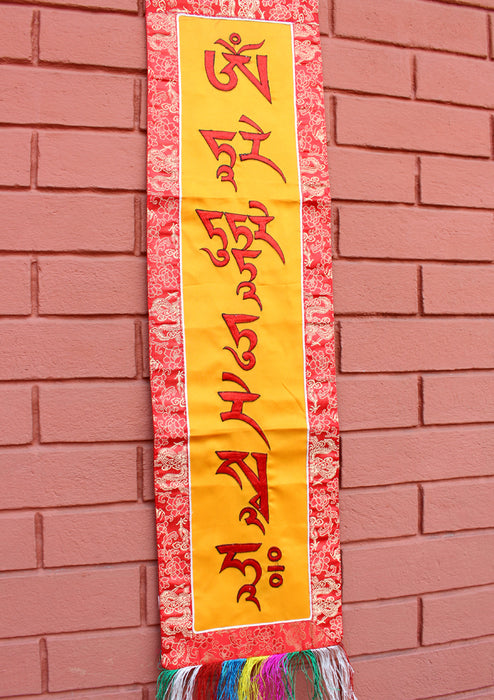 ཨོཾ
ཏཱ་རེ
ཏུཏྟཱ་རེ
ཏུ
རེ
སྭཱ
ཧཱ